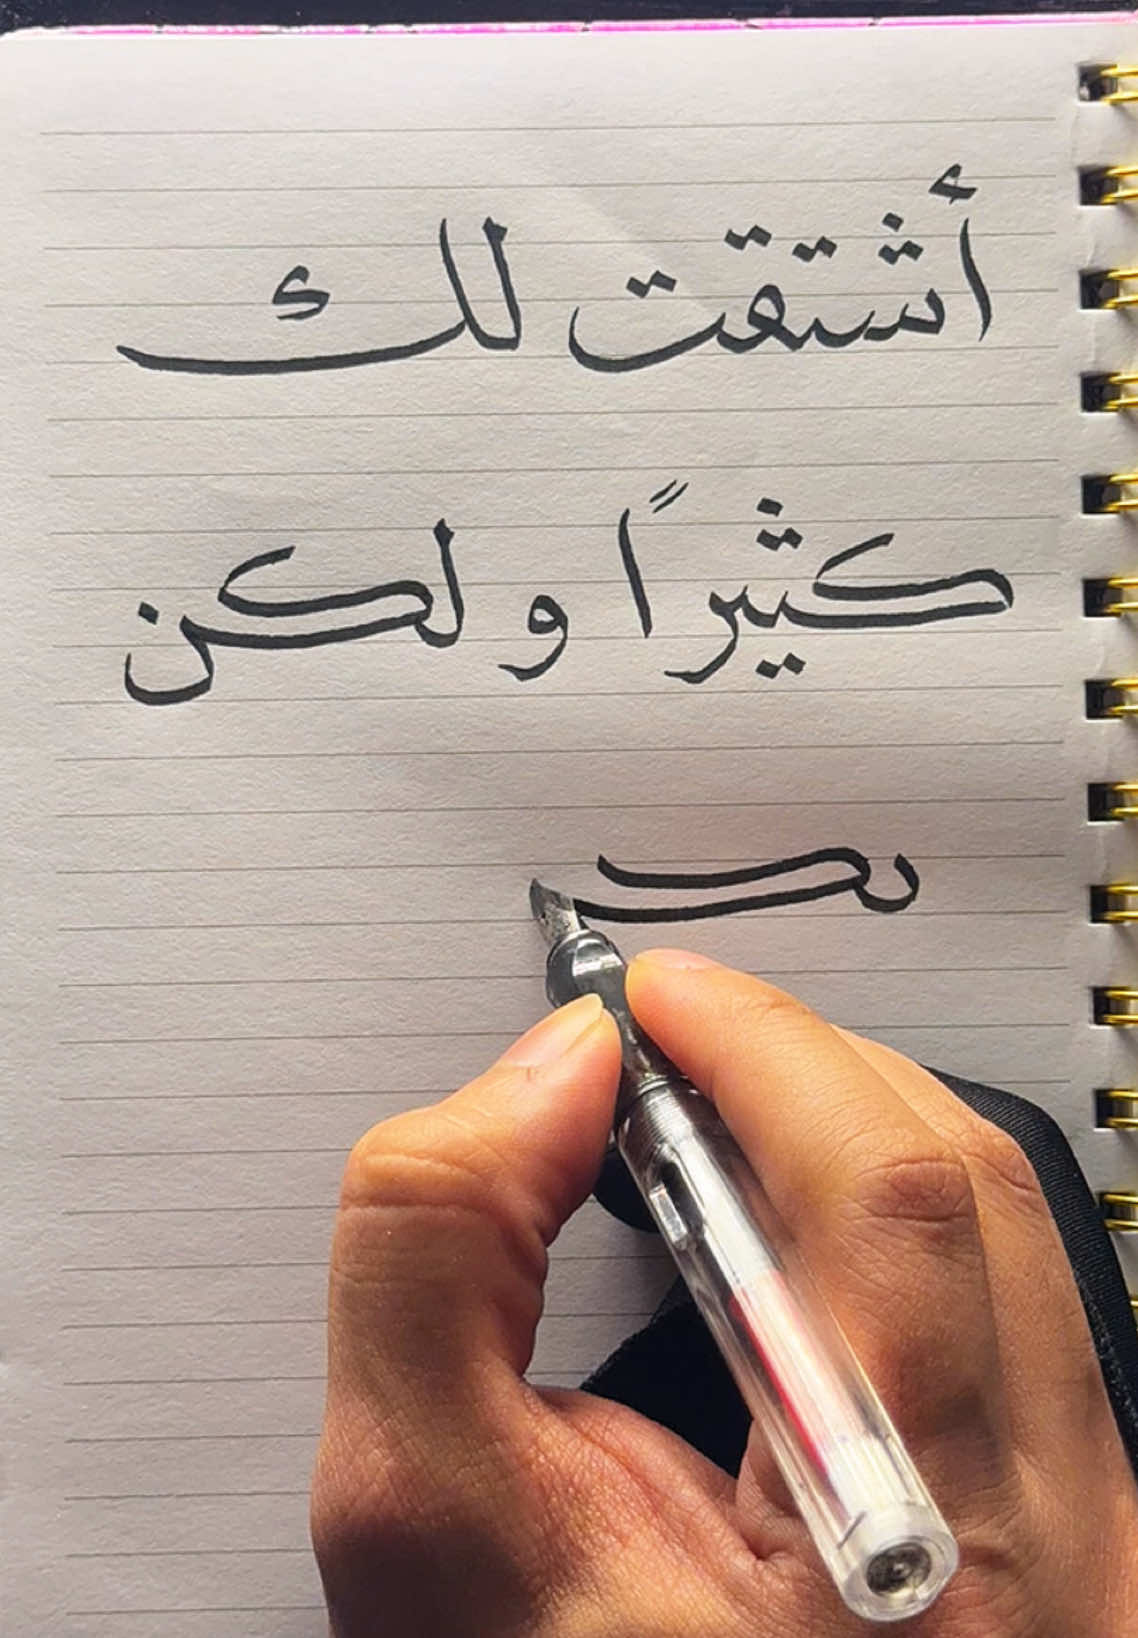 أشتقت لك
كثيراً و لكن